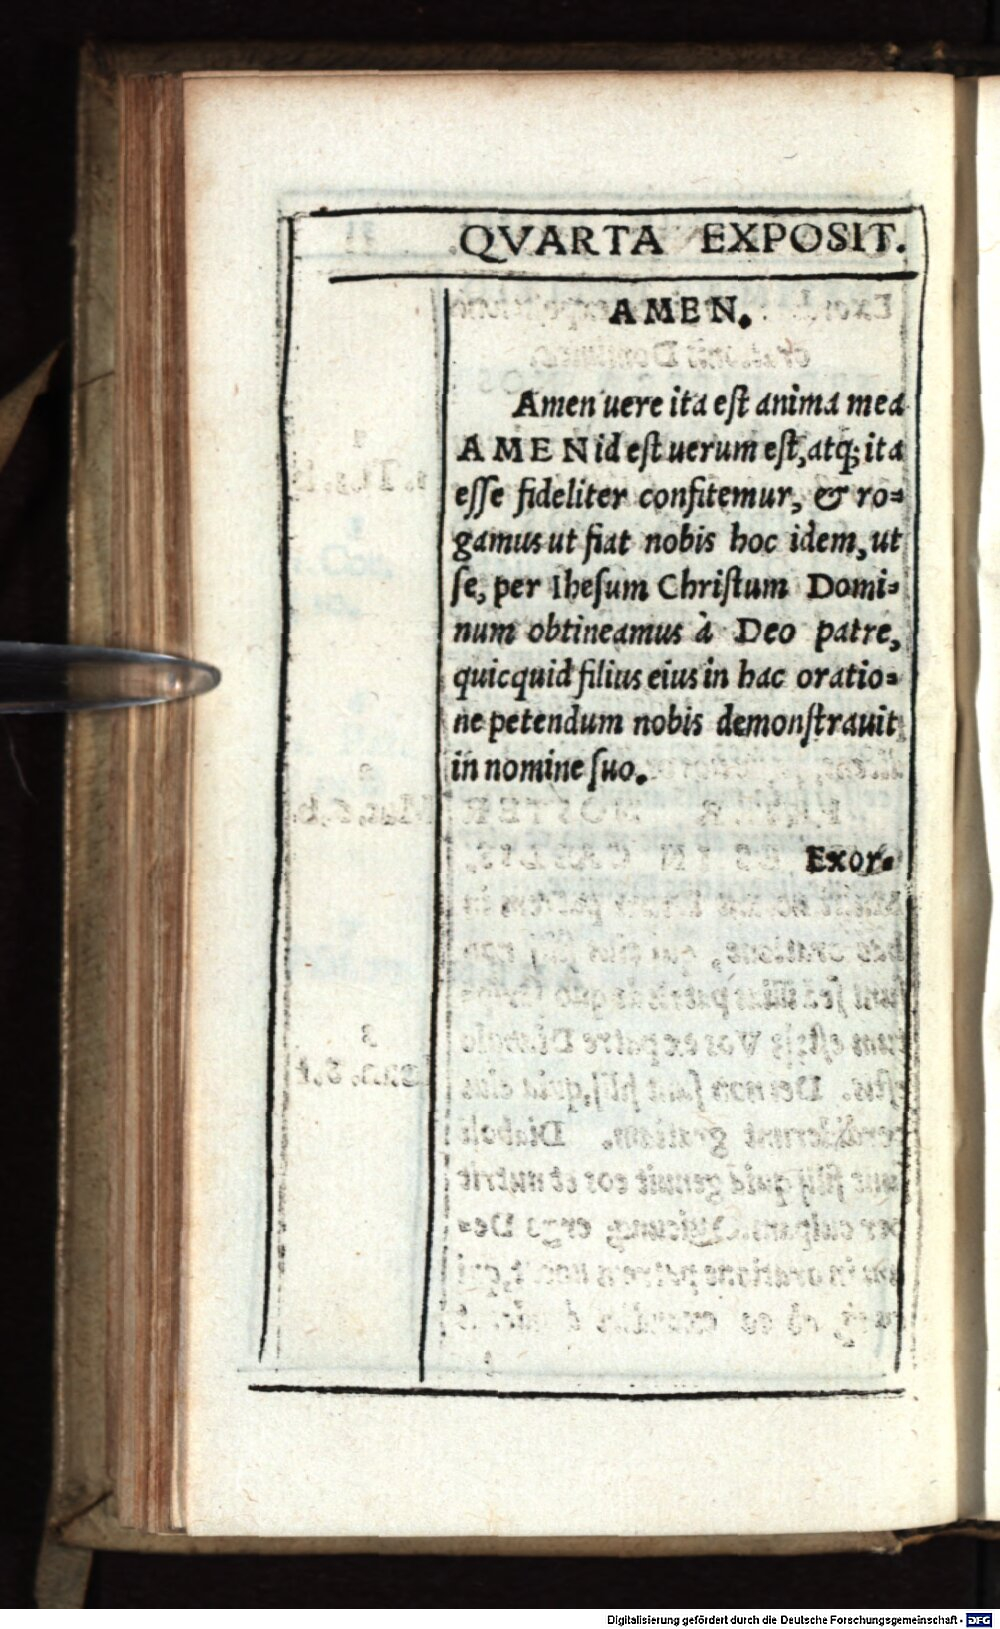 QVARTA EXPOSIT.
AMEN.
Amen uere ita est anima mea
AMEN id est uerum est, atq; ita
esse fideliter confitemur, & ro=
gamus ut fiat nobis hoc idem, ut
se, per Ihesum Christum Domi=
num obtineamus à Deo patre,
quicquid filius eius in hac oratio=
ne petendum nobis demonstrauit
in nomine suo.
Exor=
Digitalisierung gefördert durch die Deutsche Forschungsgemeinschaft - DFG